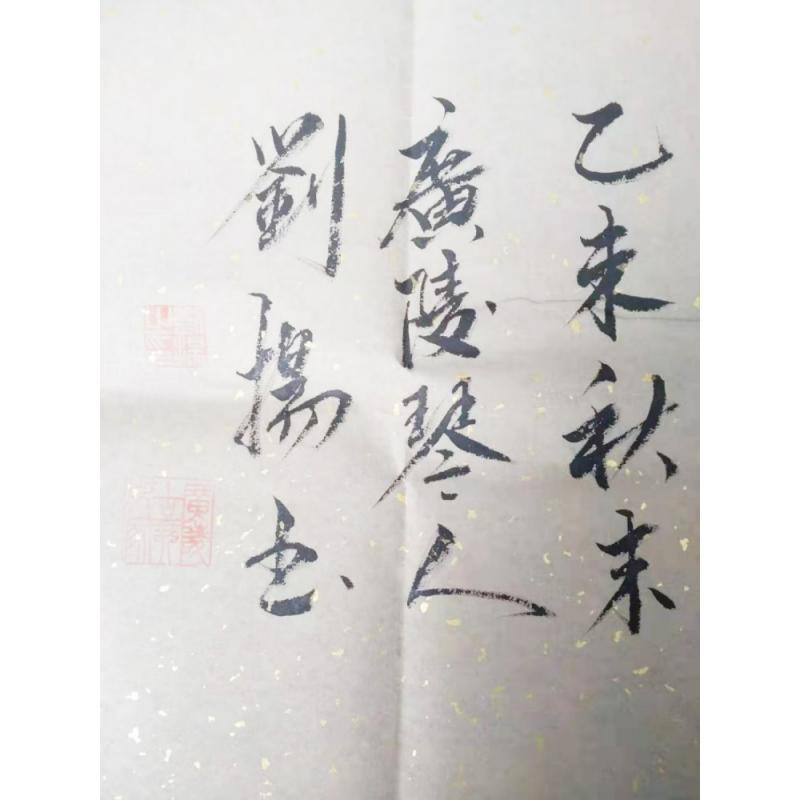 乙未秋末
廣陵琴人
劉揚书